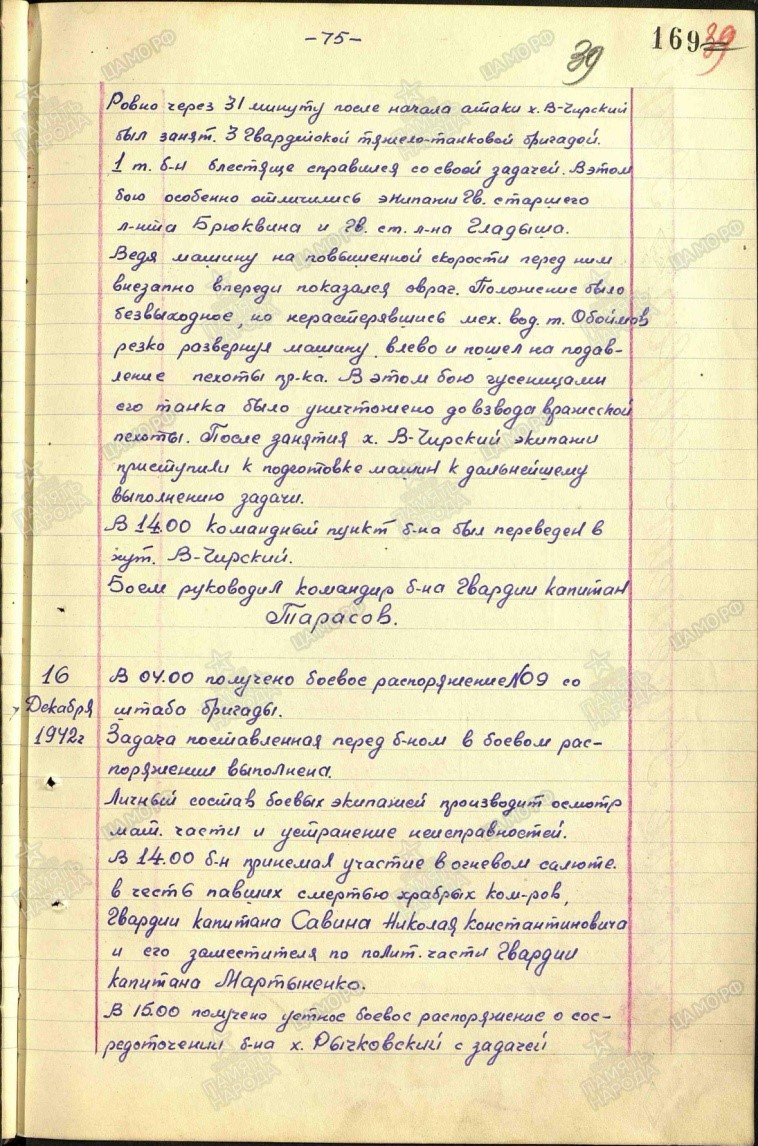 -75-
39
169 39
Ровно через 31 минуту после начала атаки х. В-Чирский
был занят. 3 Гвардейской тяжело-танковой бригадой.
1 т. б-н блестяще справился со своей задачей. В этом
бою особенно отличились экипажи Гв. старшего
л-нта Брюквина и Гв. ст. л-на Гладыша.
Ведя машину на повышенной скорости перед ним
внезапно впереди показался овраг. Положение было
безвыходное, но нерастерявшись мех. вод. т. Обоймов
резко развернул машину влево и пошел на подав-
ление пехоты пр-ка. В этом бою гусеницами
его танка было уничтожено до взвода вражеской
пехоты. После занятия х. В-Чирский экипажи
приступили к подготовке машин к дальнейшему
выполнению задачи.
В 14.00 командный пункт б-на был переведен в
хут. В-Чирский.
Боем руководил командир б-на Гвардии капитан
Тарасов.
16
Декабря
1942г
В 04.00 получено боевое распоряжение №09 со
штаба бригады.
Задача поставленная перед б-ном в боевом рас-
поряжении выполнена.
Личный состав боевых экипажей производит осмотр
мат. части и устранение неисправностей.
В 14.00 б-н принемал участие в огневом салюте.
в честь павших смертью храбрых ком-ров,
Гвардии капитана Савина Николая Константиновича
и его заместителя по полит. части Гвардии
капитана Мартыненко.
В 15.00 получено устное боевое распоряжение о сос-
редоточении б-на х. Рычковский с задачей
ЦАМО РФ
ПАМЯТЬ НАРОДА